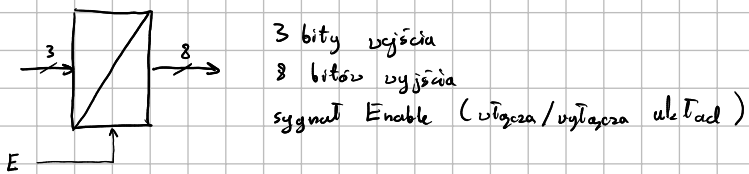 3 8 3 bity wejścia
8 bitów wyjścia
sygnał Enable (włącza/wyłącza układ)
E